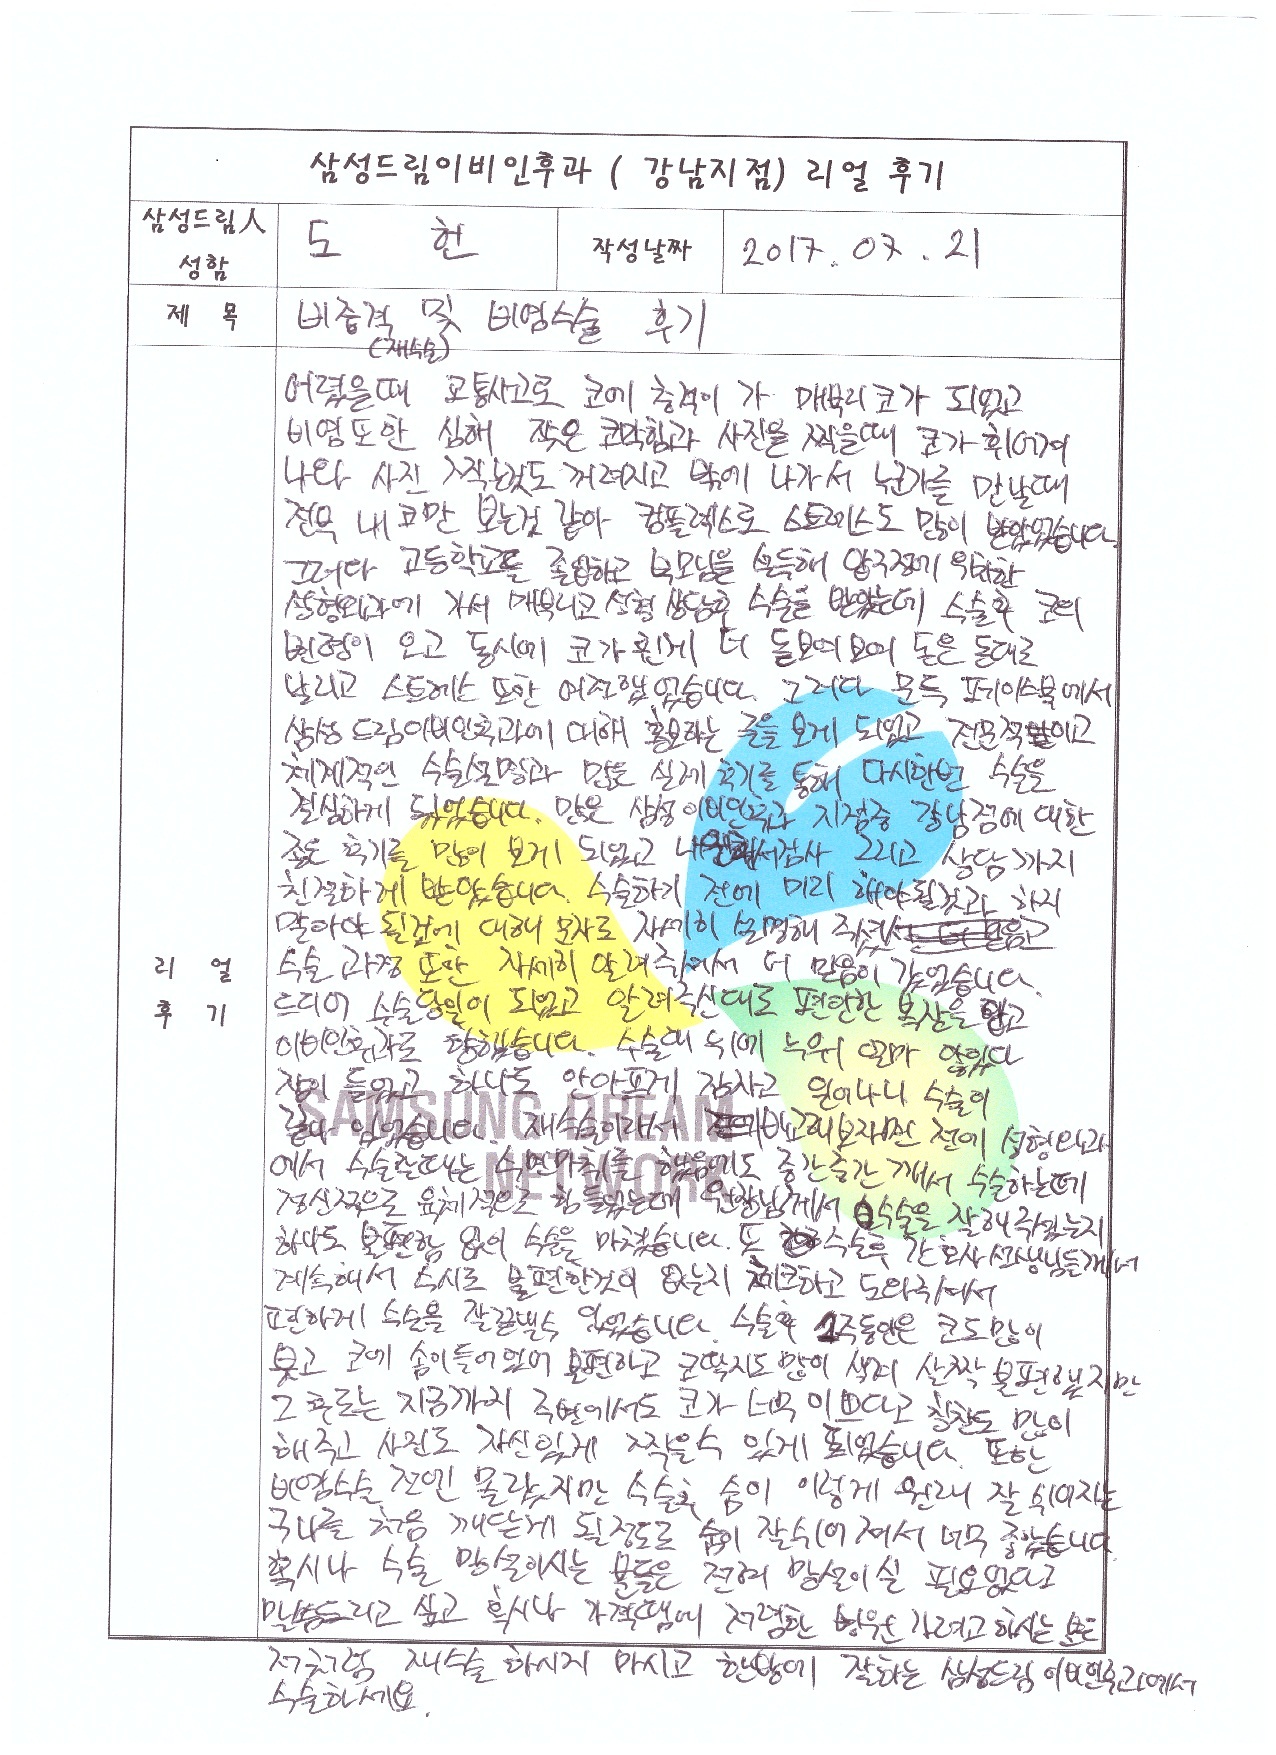 삼성드림이비인후과 ( 강남지점) 리얼 후기
삼성드림人 성함
도 헌
작성날짜
2017. 07. 21
제 목
비중격 및 비염수술 후기
(재수술)
리 얼 후 기
어렸을때 교통사고로 코에 충격이 가 매부리코가 되었고
비염또한 심해 잦은 코막힘과 사진을 찍을때 코가 휘어져
나와 사진 찍는것도 꺼려지고 밖에 나가서 누군가를 만날때
전부 내 코만 보는것 같아 컴플렉스로 스트레스도 많이 받았었습니다.
그러다 고등학교를 졸업하고 부모님을 설득해 압구정에 위치한
성형외과에 가서 매부리코 성형 상담후 수술을 받았는데 수술후 코의
변형이 오고 동시에 코가 휜게 더 돋보여보여 돈은 돈대로
날리고 스트레스 또한 여전했었습니다. 그러다 문득 페이스북에서
삼성드림이비인후과에 대해 홍보하는 글을 보게 되었고 전문적이고
체계적인 수술설명과 많은 실제 후기를 통해 다시한번 수술을
결심하게 되었습니다. 많은 삼성이비인후과 지점중 강남점에 대한
좋은 후기를 많이 보게 되었고 검사 그리고 상담까지
친절하게 받았습니다. 수술하기 전에 미리 해야될것과 하지
말아야 될것에 대해 문자로 자세히 설명해 주셨고
수술 과정 또한 자세히 알려주셔서 더 믿음이 갔었습니다.
드디어 수술당일이 되었고 알려주신대로 편안한 복장을 입고
이비인후과로 향했습니다. 수술대 위에 누워 얼마 안있다
잠이 들었고 하나도 안아프게 잠자고 일어나니 수술이
끝나 있었습니다. 재수술이라서 비교해보자면 전에 성형외과
에서 수술할때는 수면마취를 했음에도 중간중간 깨서 수술하는데
정신적으로 육체적으로 힘들었는데 원장님께서 수술을 잘해주셨는지
하나도 불편함 없이 수술을 마쳤습니다. 또 수술후 간호사선생님들께서
계속해서 수시로 불편한것이 없는지 체크하고 도와주셔서
편하게 수술을 잘끝낼수 있었습니다. 수술후 1주동안은 코도많이
붓고 코에 솜이들어있어 불편하고 코딱지도 많이 생겨 살짝 불편했지만
그 후로는 지금까지 주변에서도 코가 너무 이쁘다고 칭찬도 많이
해주고 사진도 자신있게 찍을수 있게 되었습니다. 또한
비염수술 전엔 몰랐지만 수술후 숨이 이렇게 원래 잘 쉬어지는
구나를 처음 깨닫게 될정도로 숨이 잘쉬어져서 너무 좋았습니다
혹시나 수술 망설이시는 분들은 전혀 망설이실 필요없다고
말씀드리고 싶고 혹시나 가격땜에 저렴한 병원 가려고 하시는 분은
저처럼 재수술 하시지 마시고 한방에 잘하는 삼성드림이비인후과에서
수술하세요.
SAMSUNG DREAM
NETWORK